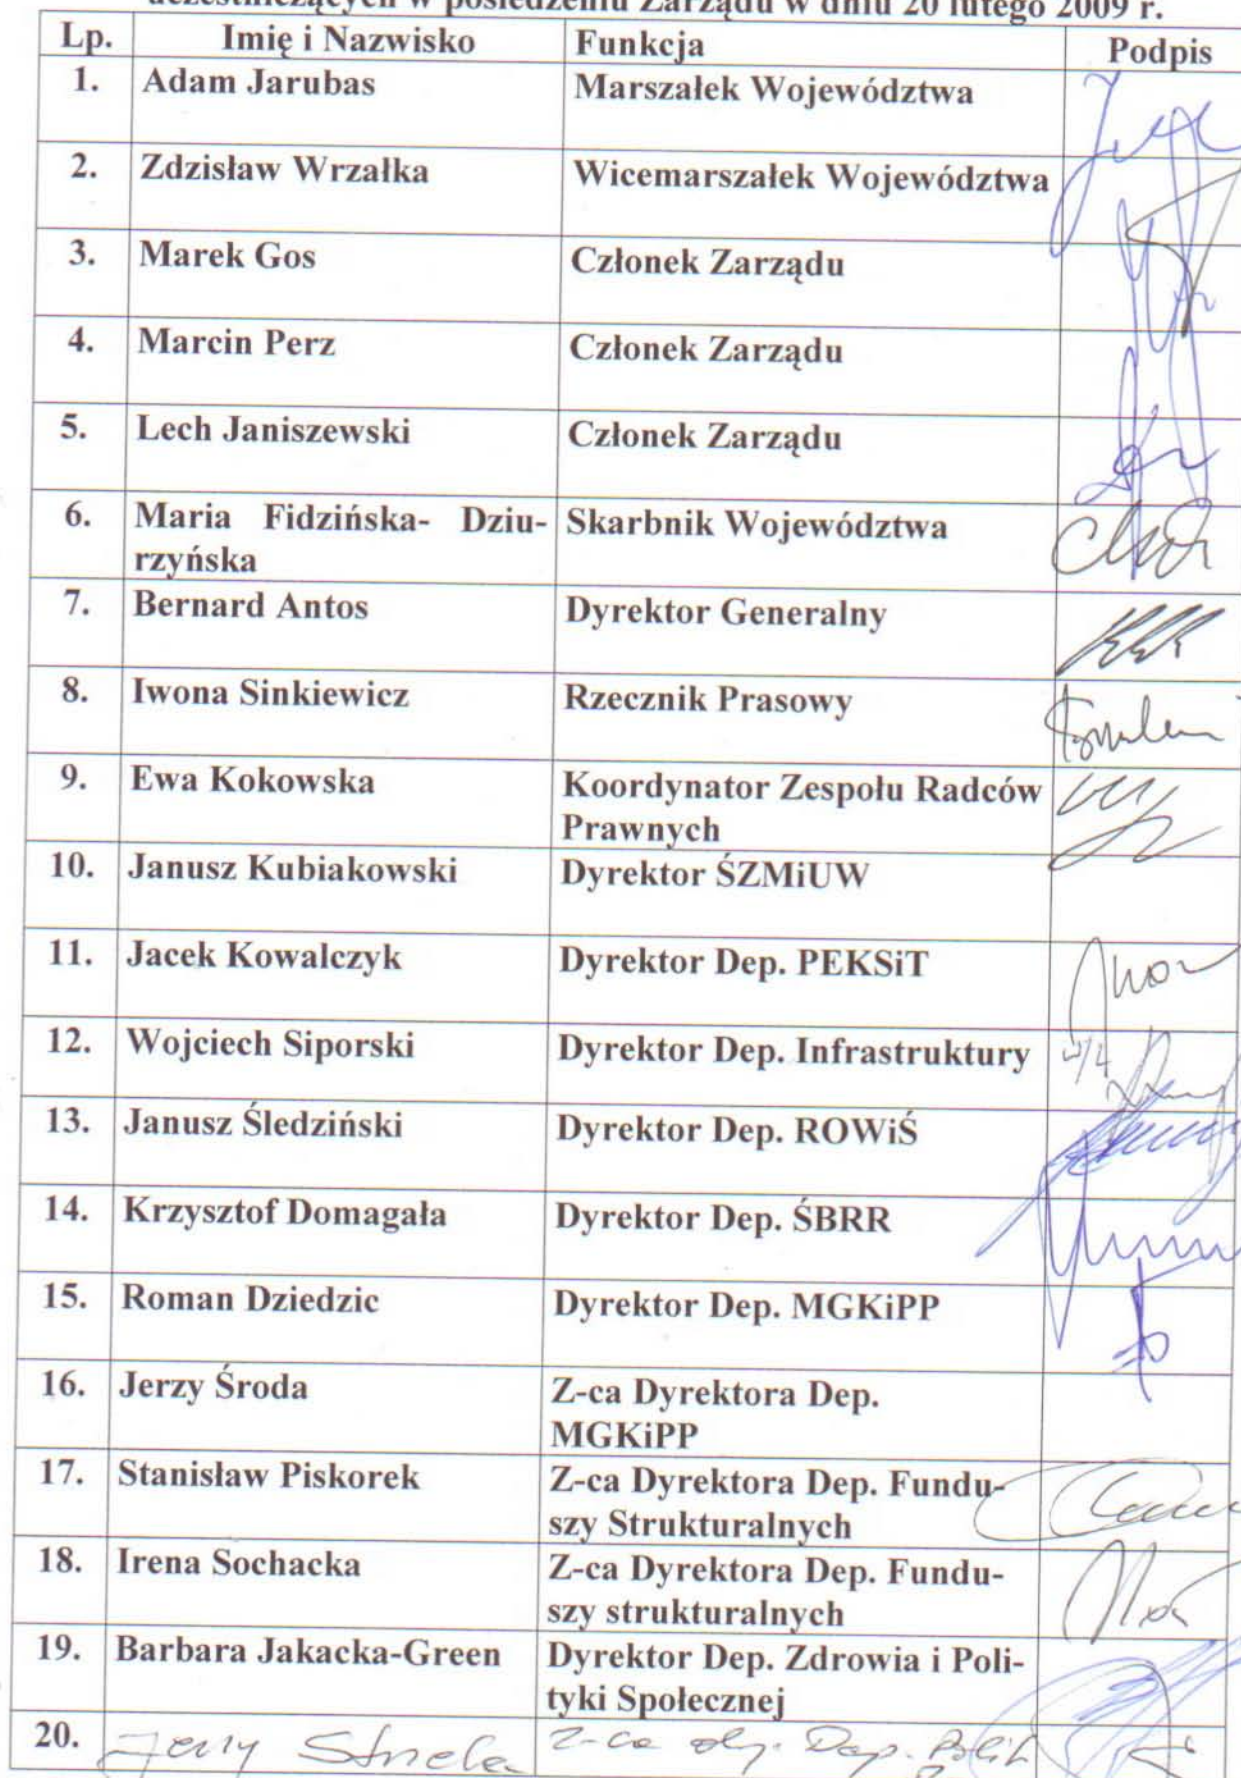 uczestniczących w posiedzeniu Zarządu w dniu 20 lutego 2009 r.
Lp. Imię i Nazwisko Funkcja Podpis
1. Adam Jarubas Marszałek Województwa
2. Zdzisław Wrzałka Wicemarszałek Województwa
3. Marek Gos Członek Zarządu
4. Marcin Perz Członek Zarządu
5. Lech Janiszewski Członek Zarządu
6. Maria Fidzińska- Dziu- Skarbnik Województwa
rzyńska
7. Bernard Antos Dyrektor Generalny
8. Iwona Sinkiewicz Rzecznik Prasowy
9. Ewa Kokowska Koordynator Zespołu Radców
Prawnych
10. Janusz Kubiakowski Dyrektor ŚZMiUW
11. Jacek Kowalczyk Dyrektor Dep. PEKSiT
12. Wojciech Siporski Dyrektor Dep. Infrastruktury
13. Janusz Śledziński Dyrektor Dep. ROWiŚ
14. Krzysztof Domagała Dyrektor Dep. ŚBRR
15. Roman Dziedzic Dyrektor Dep. MGKiPP
16. Jerzy Środa Z-ca Dyrektora Dep.
MGKiPP
17. Stanisław Piskorek Z-ca Dyrektora Dep. Fundu-
szy Strukturalnych
18. Irena Sochacka Z-ca Dyrektora Dep. Fundu-
szy strukturalnych
19. Barbara Jakacka-Green Dyrektor Dep. Zdrowia i Poli-
tyki Społecznej
20. Jerzy Z-ca dyr. Dep.